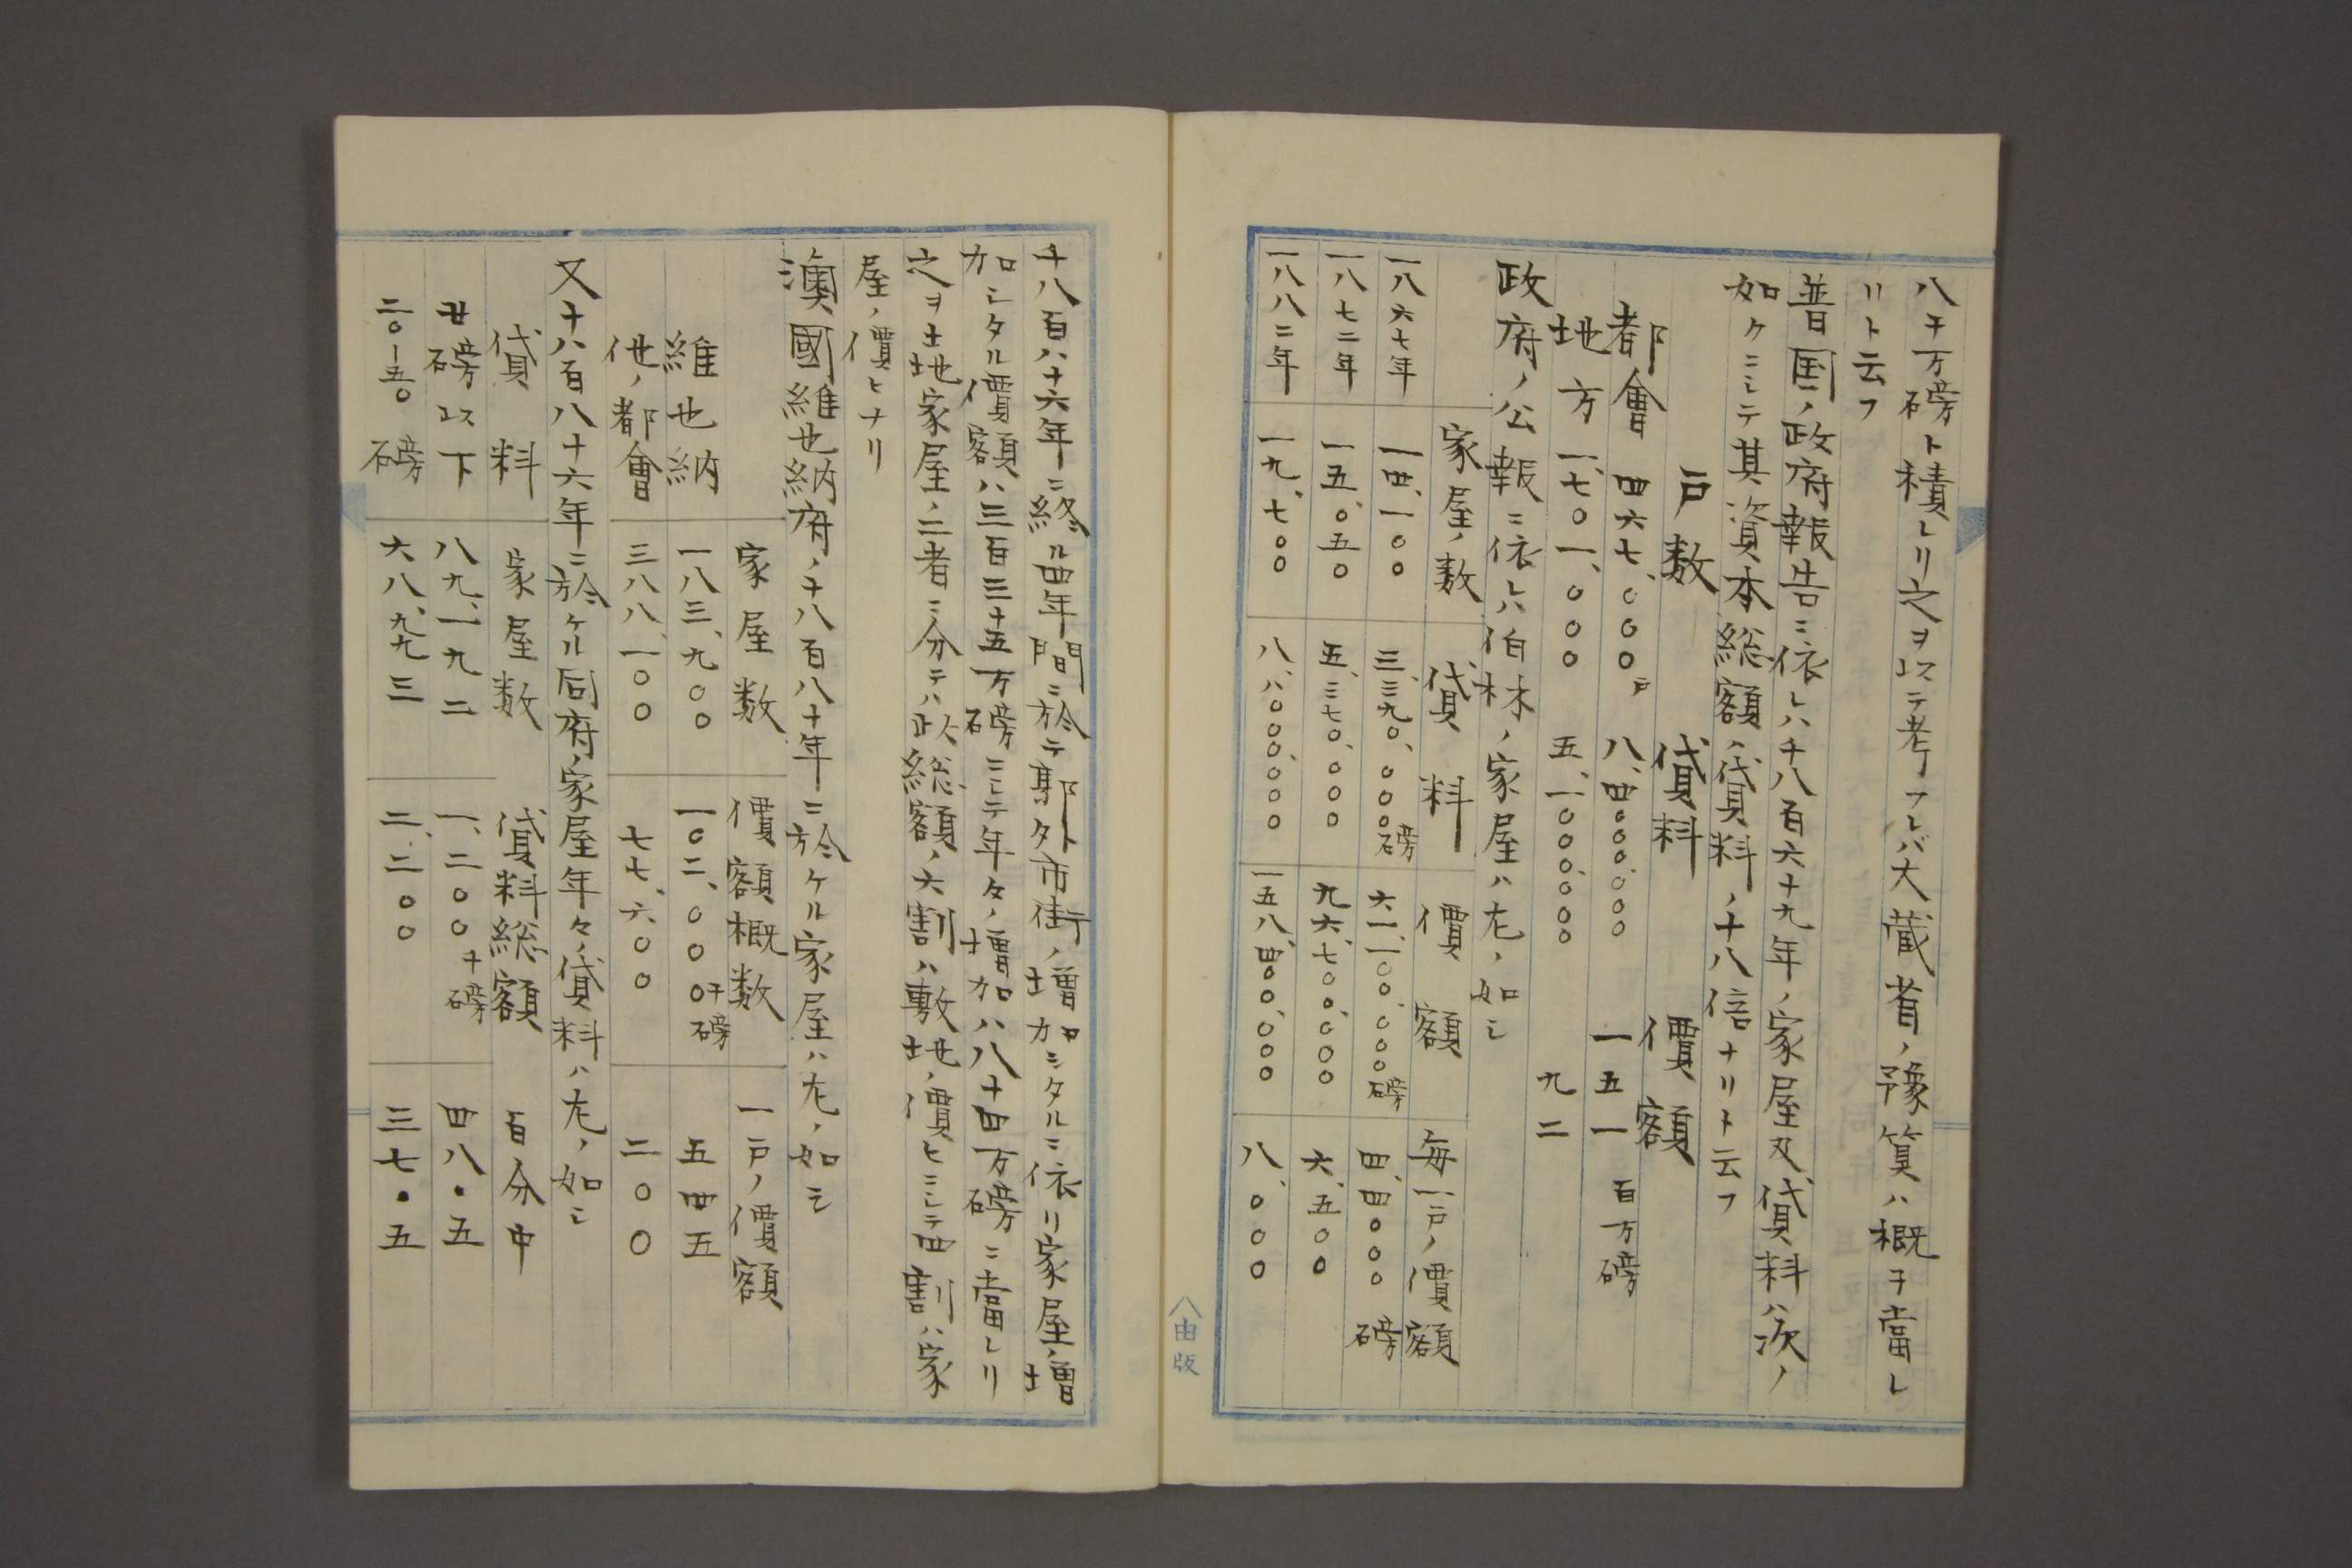 八千万磅ト積レリ之ヲ以テ考フレバ大蔵省ノ豫算ハ概子當レ
リト云フ
普国ノ政府報告ニ依レハ千八百六十九年ノ家屋及貸料ハ次ノ
如クニシテ其資本総額ノ貸料ノ十八倍ナリト云フ
戸数 貸料 價額
都會 四六七、〇〇〇戸 八、四〇〇、〇〇〇 一五一 百万磅
地方 一、七〇一、〇〇〇 五、一〇〇、〇〇〇 九二
政府ノ公報ニ依レハ伯林ノ家屋ハ左ノ如シ
家屋ノ数 貸料 價額 毎一戸ノ價額
一八六七年 一四、一〇〇 三、三九〇、〇〇〇磅 六一、一〇〇、〇〇〇磅 四、四〇〇〇磅
一八七二年 一五、〇五〇 五、三七〇、〇〇〇 九六、七〇〇、〇〇〇 六、五〇〇
一八八二年 一九、七〇〇 八、八〇〇、〇〇〇 一五八、四〇〇、〇〇〇 八、〇〇〇
八由版
千八百八十六年ニ終ル四年間ニ於テ郭外市街ノ増加シタルニ依リ家屋ノ増
加シタル價額ハ三百三十五万磅ニシテ年々ノ増加ハ八十四万磅ニ當レリ
之ヲ土地家屋ノ二者ニ分テハ此総額ノ六割ハ敷地ノ價ヒニシテ四割ハ家
屋ノ價ヒナリ
澳國維也納府ノ千八百八十年ニ於ケル家屋ハ左ノ如シ
家屋数 價額概数 一戸ノ價額
維也納 一八三、九〇〇 一〇二、〇〇〇千磅 五四五
他ノ都會 三八八、一〇〇 七七、六〇〇 二〇〇
又十八百八十六年ニ於ケル同府ノ家屋年々ノ貸料ハ左ノ如シ
貸料 家屋数 貸料総額 百分中
廿磅以下 八九、一九二 一、二〇〇千磅 四八・五
二〇―五〇磅 六八、九九三 二、二〇〇 三七・五